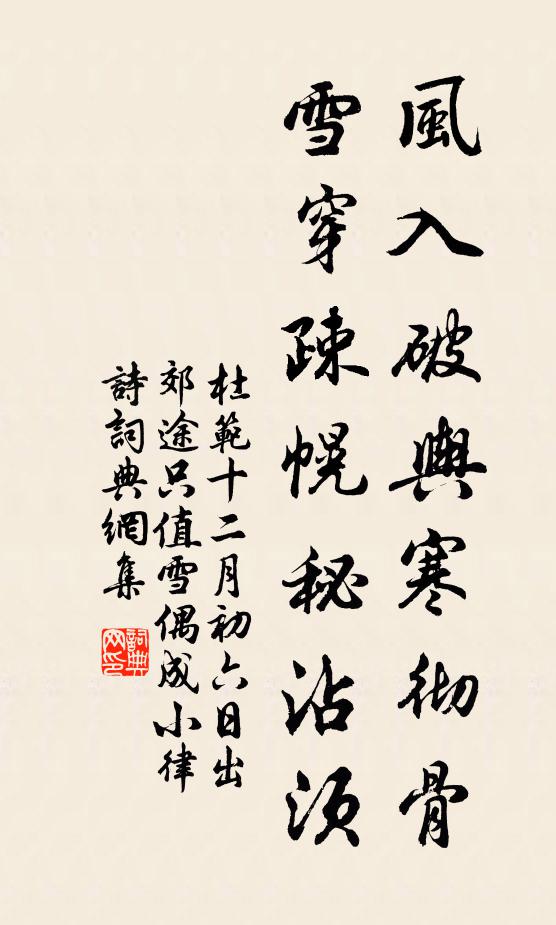 風入破輿寒彻骨
雪穿疎幌秘沾須
杜範十二月初六日出
郊途只值雪偶成小律
詩詞典網集
詞典网印